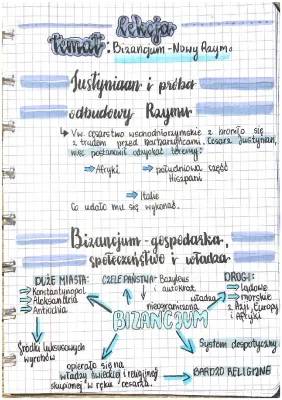 lekcja
temat: Bizancjum - Nowy Rzym.
Justynian i próba
odbudowy Rzymu
Vw. cesarstwo wschodniorzymskie z broniło się
z trudem przed barbarzyńcami. Cesarz Justynian,
więc postanowił odzyskać tereny:
Afryki
południowa część
Hiszpani
Italie
Co udało mu się wykonać.
Bizancjum - gospodarka,
społeczeństwo i władza
DUŻE MIASTA:
Konstantynopol
Aleksandria
Antiochia
CZELE PAŃSTWA: Bazyleus
i autokrat
władza
nieograniczona
DROGI:
lądowe
morskie
z Azji, Europy
i Afryki
BIZANCJUM
Środki luksusowych
wyrobów
opierało się na
władzy świeckiej i religijnej
skupionej w ręku cesarza.
System despotyczny
BARDZO RELIGIJNE